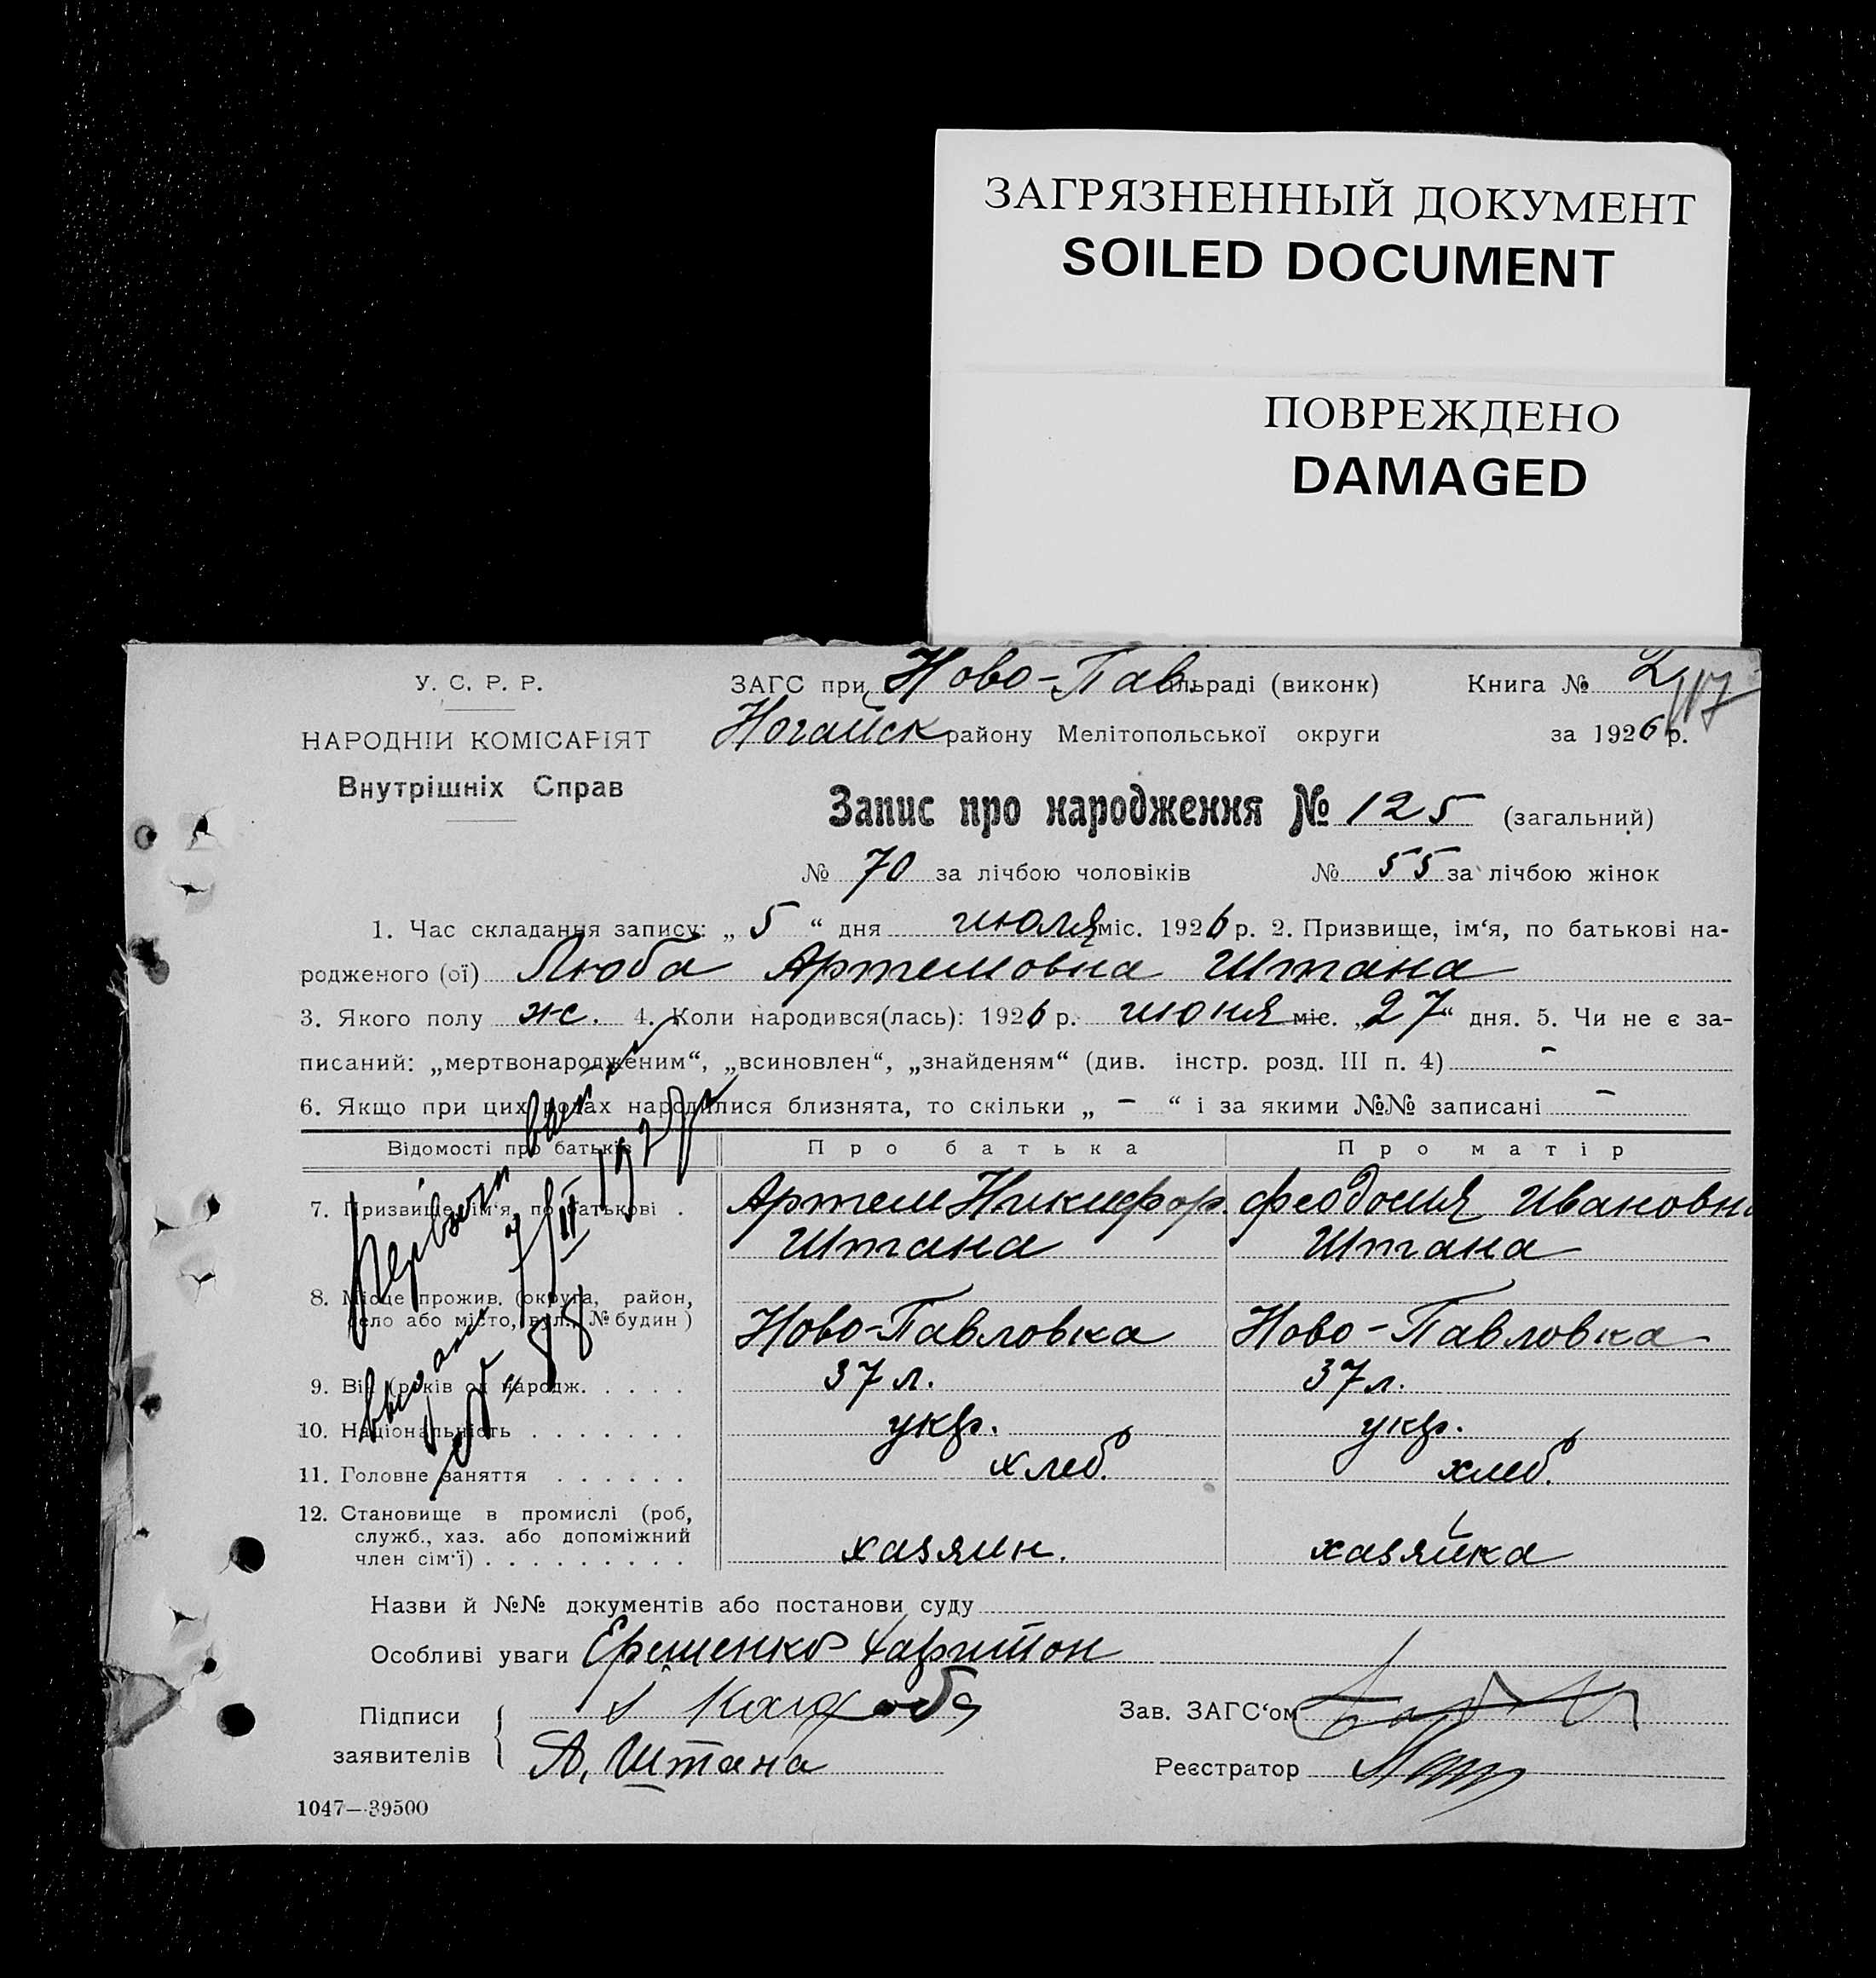 ЗАГРЯЗНЕННЫЙ ДОКУМЕНТ
SOILED DOCUMENT
ПОВРЕЖДЕНО
DAMAGED
У. С. Р. Р.
НАРОДНІИ КОМІСАРІЯТ
Внутрішніх Справ
ЗАГС при Ново-Пав. ільраді (виконк) Книга № 2
117
Ногайск району Мелітопольської округи за 1926 р.
Запис про народження № 125 (загальний)
№ 70 за лічбою чоловіків № 55 за лічбою жінок
1. Час складання запису: „ 5 “ дня июля міс. 1926 р. 2. Призвище, ім‘я, по батькові на-
родженого (ої) Люба Артемовна Штана
3. Якого полу ж. 4. Коли народився(лась): 1926 р. июня міс. „27“ дня. 5. Чи не є за-
писаний: „мертвонародженим“, „всиновлен“, „знайденям“ (див. інстр. розд. III п. 4) -
6. Якщо при цих родах народилися близнята, то скільки „ - “ і за якими №№ записані -
Відомості про батьків Про батька Про матір
7. Призвище, ім‘я, по батькові . Артем Никифор. Феодосия Ивановн
Штана Штана
8. Місце прожив. (округа, район,
село або місто, вул., № будин ) Ново-Павловка Ново-Павловка
9. Вік (років од народж. . . . . 37 л. 37 л.
10. Національність . . . . . . . укр. укр.
11. Головне заняття . . . . . . хлеб. хлеб.
12. Становище в промислі (роб,
служб., хаз. або допоміжний
член сім‘ї) . . . . . . . . . хазяин. хазяйка
Назви й №№ документів або постанови суду
Особливі уваги Ерешенко Харитон
Підписи
заявителів
А. Штана
Зав. ЗАГС‘ом
Реєстратор
1047—39500